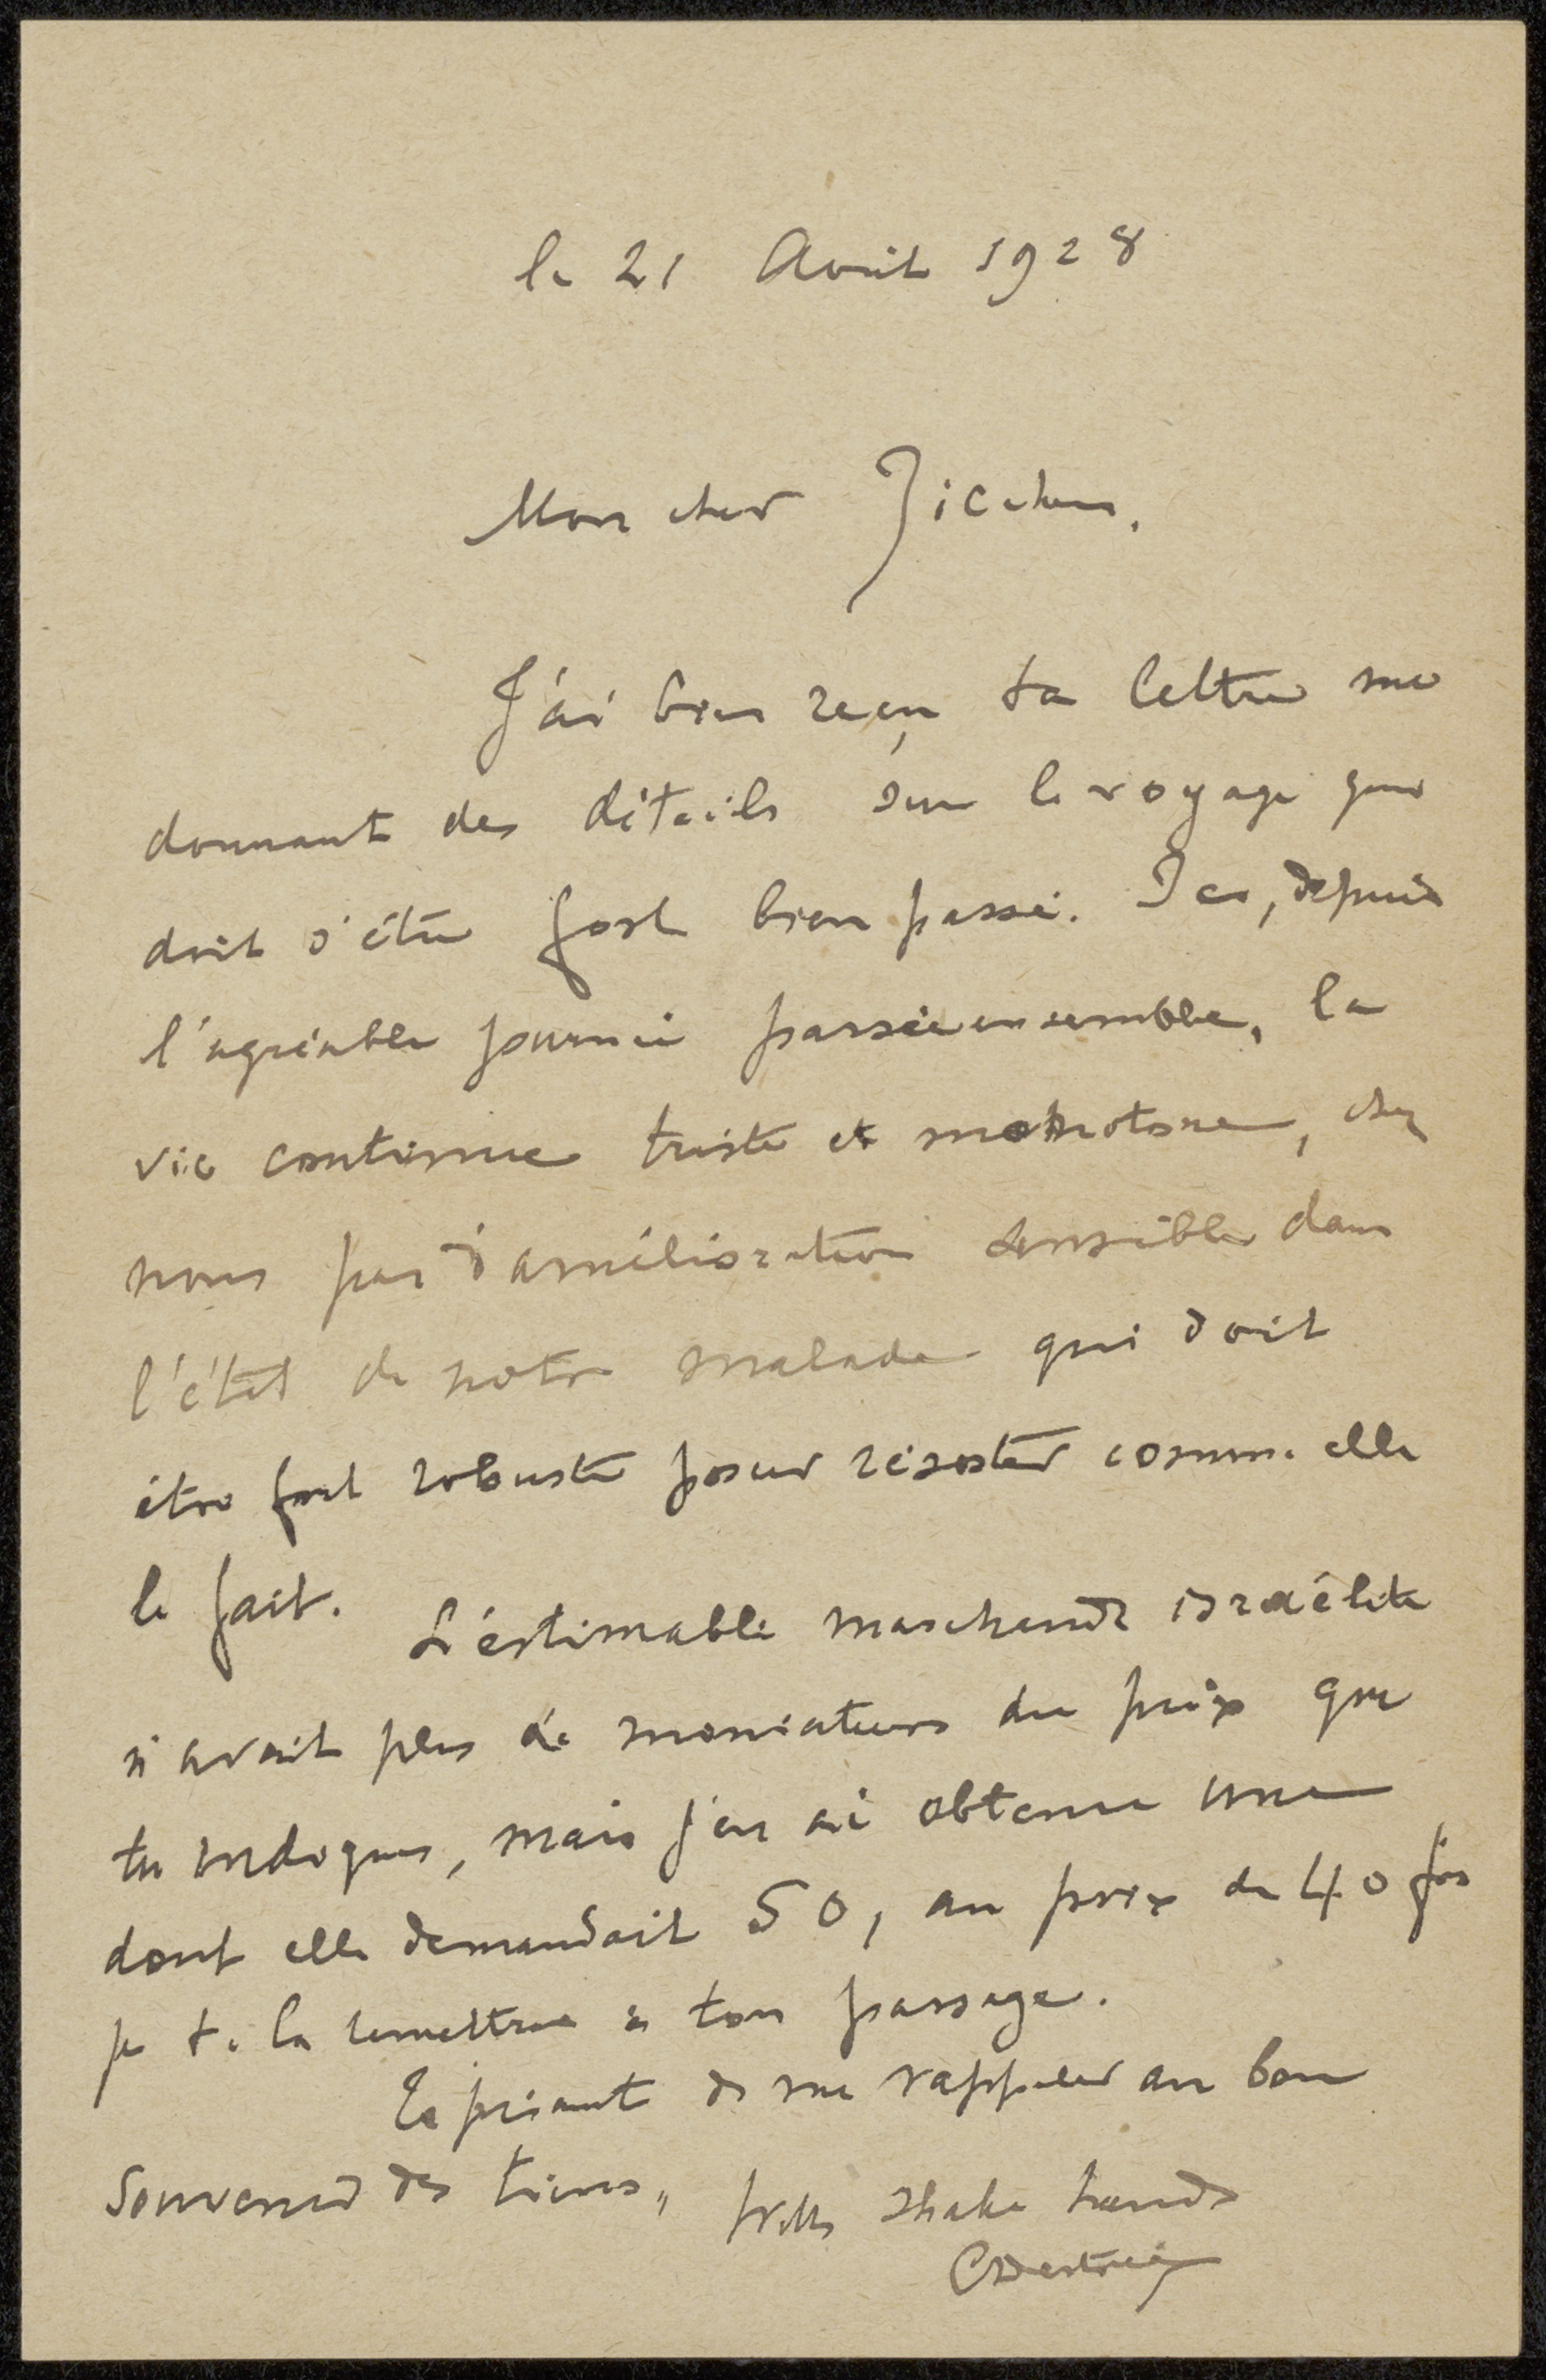 le 21 Août 1928
Mon cher
J'ai bien reçu ta lettre me
donnant des détails sur le voyage qui
doit s'être fort bien passé. Ici, depuis
l'agréable journée passée ensemble, la
vie continue triste et monotone, chez
nous pas d'amélioration sensible dans
l'état de notre malade qui doit
être fort robuste pour résister comme elle
le fait. L'estimable marchande israélite
n'avait plus de moniateurs du prix que
tu indiques, mais j'en ai obtenu une
dont elle demandait 50, au prix de 40 frs
je te la remettrai à ton passage.
Te priant de me rappeler au bon
souvenir des tiens, shake hands
CDestrée